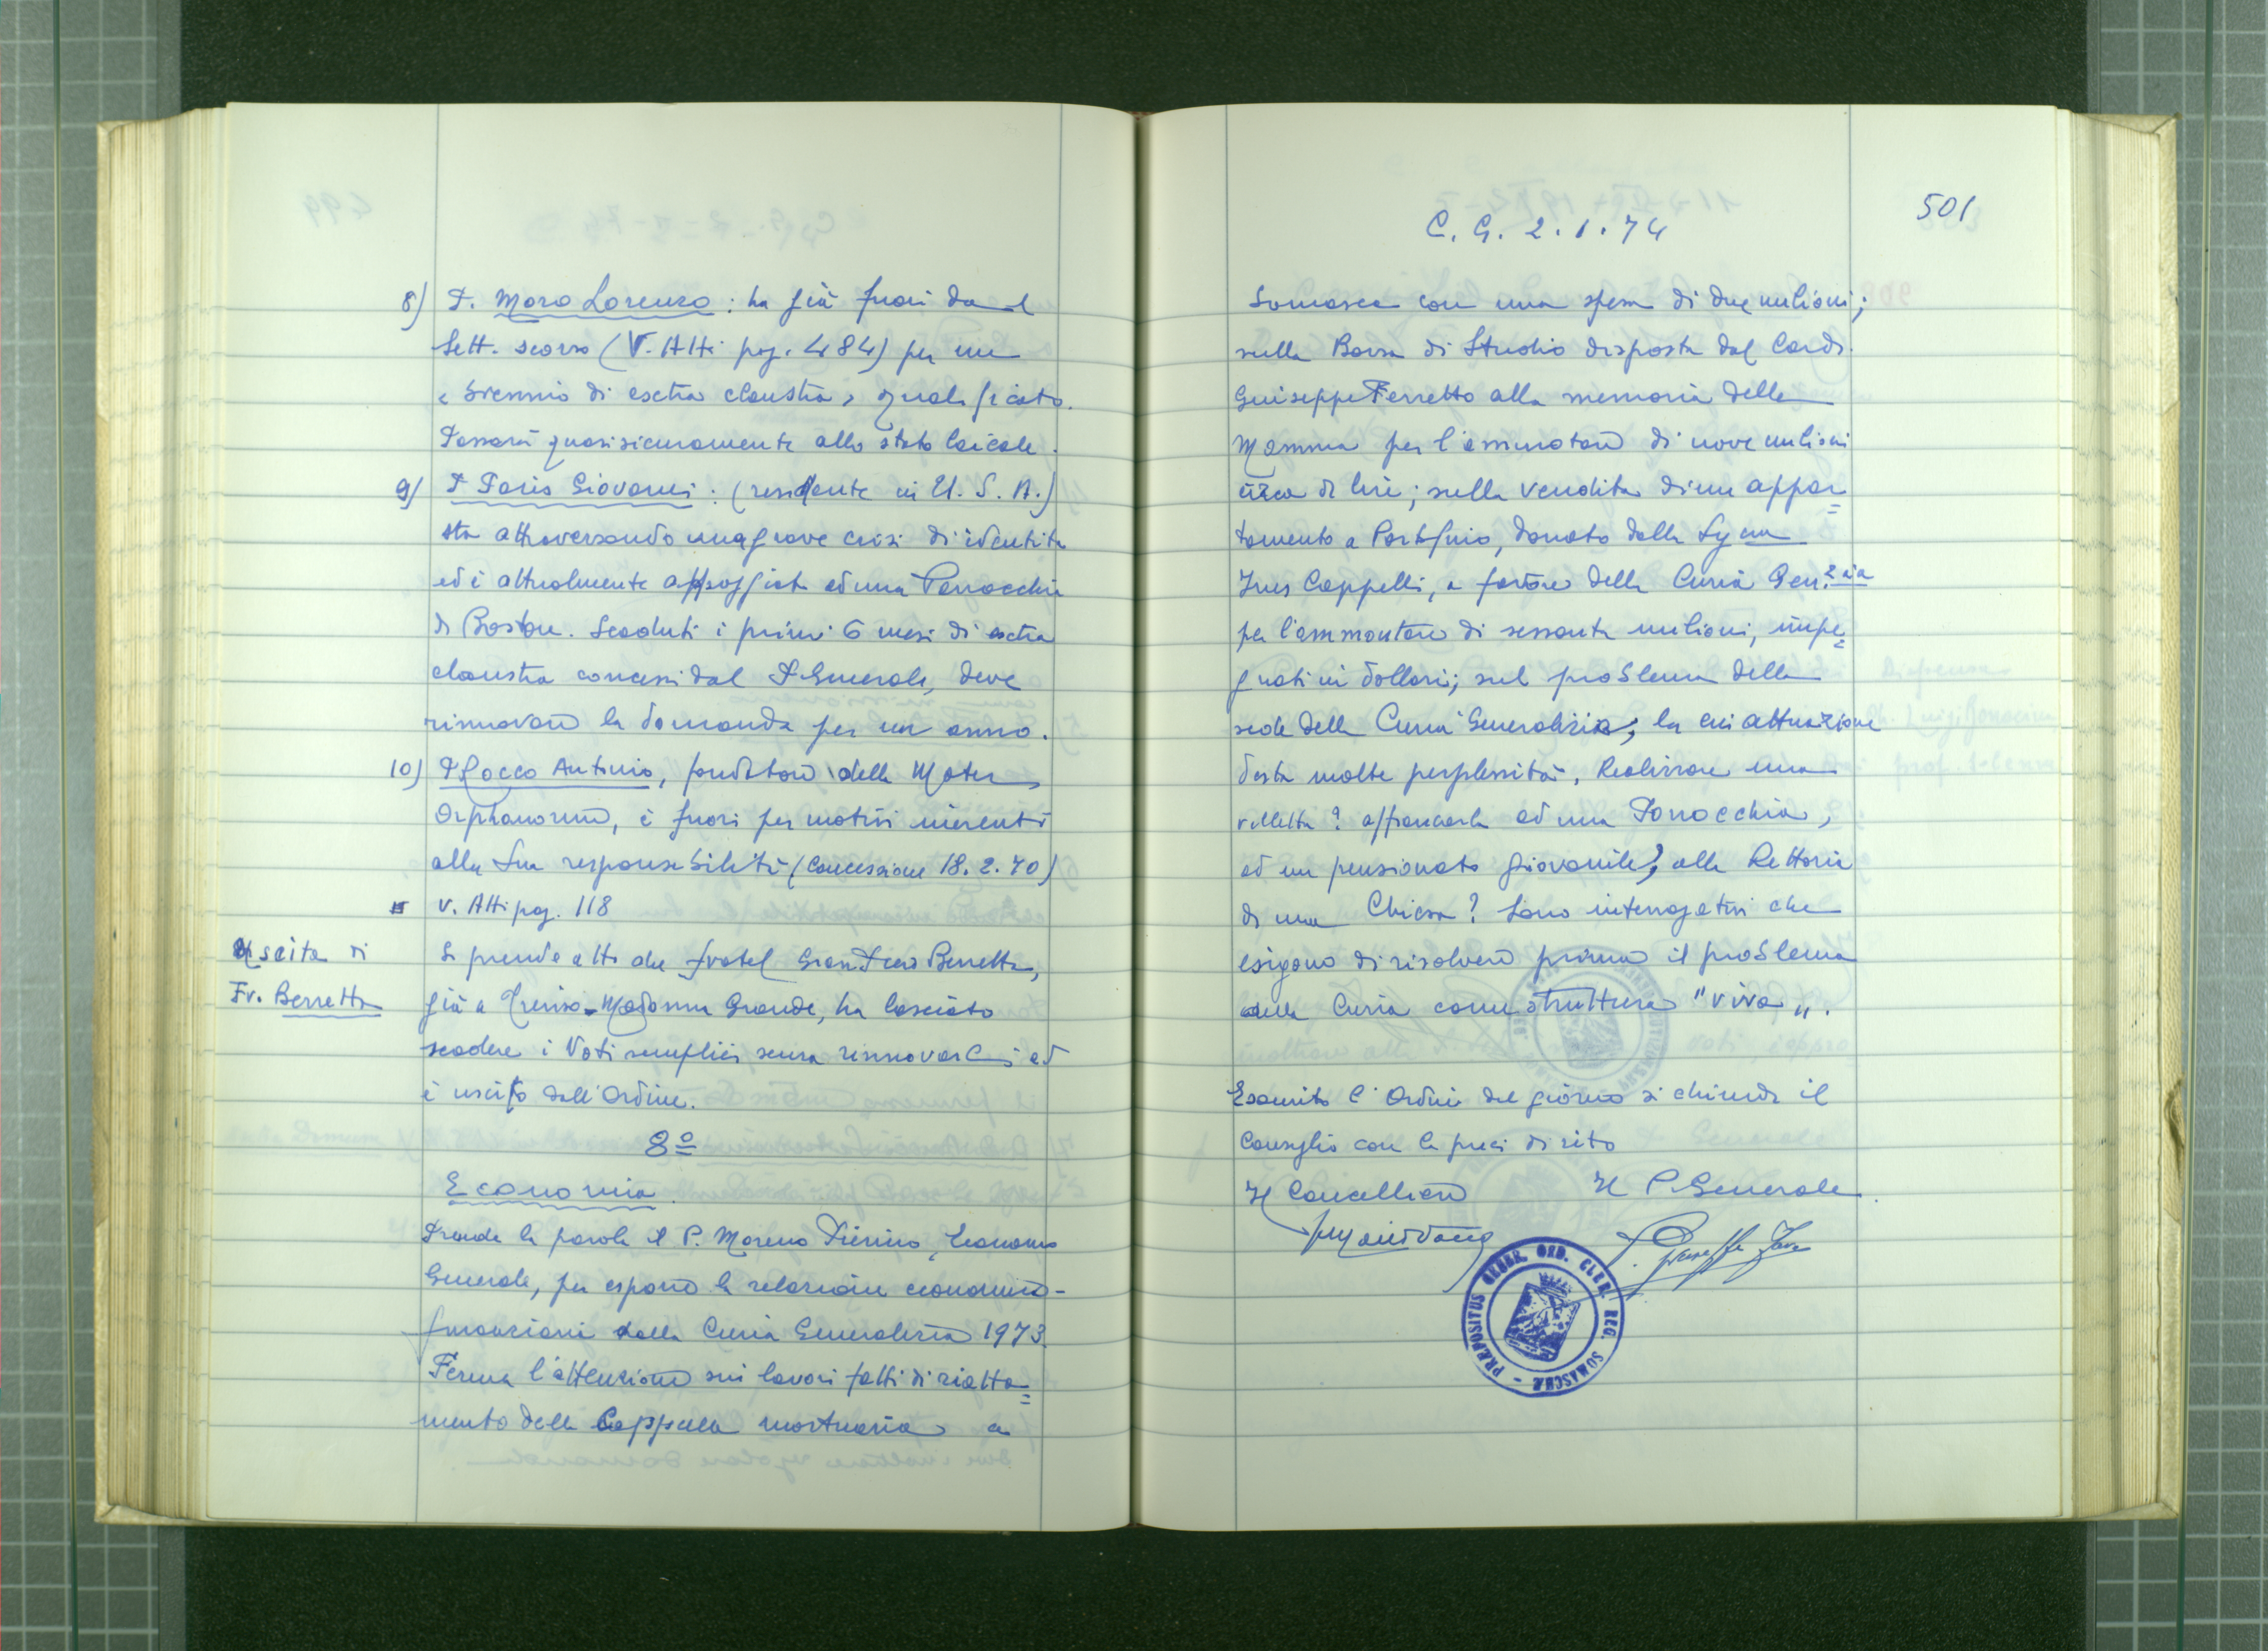 8) P. Moro Lorenzo : ha già fuori dal
Sett. scorso (V. Atti pag. 484) per un
"biennio di esctra claustra" qualificato.
Passarà quasi sicuramente allo stato laicale.
9) P. Paris Giovanni : (residente in U.S.A.)
sta attraversando una grave crisi di identità
ed è attualmente appoggiato ad una Parrocchia
di Boston. Scaduti i primi 6 mesi di esctra
claustra concessi dal P. Generale, deve
rinnovare la domanda per un anno.
10) P. Rocco Antonio, fondatore della Mater
Orphanorum, è fuori per motivi inerenti
alla sua responsabilità (Concessione 18.2.70)
v. Atti pag. 118
Uscita di
Fr. Berretta
Si prende atto che fratel Gian Piero Berretta,
già a Treviso-Madonna Grande, ha lasciato
scadere i Voti semplici senza rinnovarli ed
è uscito dall'Ordine.
8º
Economia.
Prende la parola il P. Moreno Pierino, Economo
Generale, per esporre la relazione economico-
finanziaria della Curia Generalizia 1973.
Ferma l'attenzione sui lavori fatti di riatta=
mento della Cappella mortuaria a
501
C. G. 2.1.74
Somasca con una spesa di due milioni;
sulla Borsa di Studio disposta dal Card.
Guiseppe Ferretto alla memoria della
Mamma per l'ammontare di nove milioni
circa di lire; sulla vendita di un appar=
tamento a Portofino, donato dalla Sig.na
Ines Cappelli, a favore della Curia Gen.zia
per l'ammontare di sessanta milioni, impe=
gnati in dollari; sul problema della
sede della Curia Generalizia, la cui attuazione
desta molte perplessità. Realizzare una
villetta? affiancarla ad una Parrocchia,
ad un pensionato giovanile, alla Rettoria
di una Chiesa? Sono interrogativi che
esigono di risolvere prima il problema
della Curia come struttura "viva".
Esaurito l'Ordine del giorno si chiude il
Consiglio con le preci di rito
Il Cancelliere Il P. Generale.
P. Giuseppe
PRÆPOSITUS GENER. ORD. CLER. REG. SOMASCHÆ